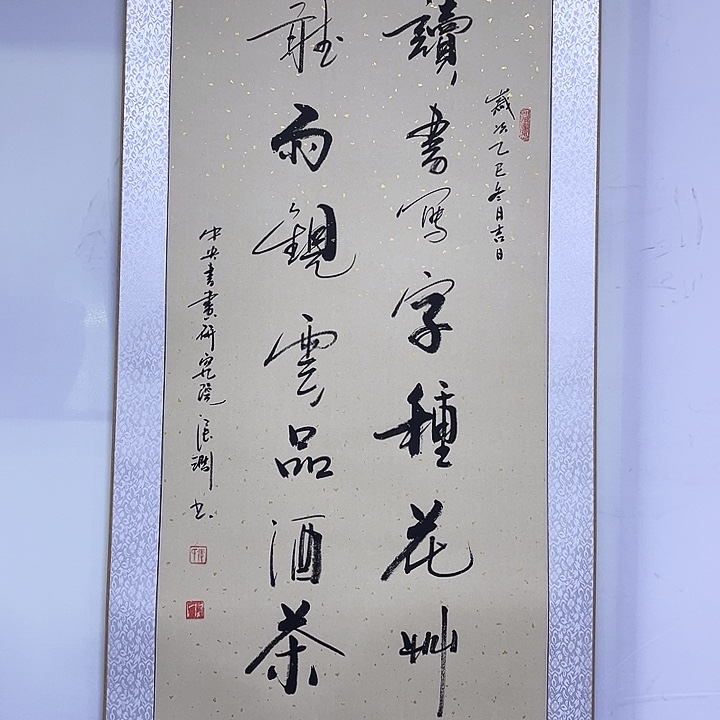 歲次乙巳冬月吉日
讀書寫字種花艸
聽雨觀雲品酒茶
中央書畫研究院張淵书